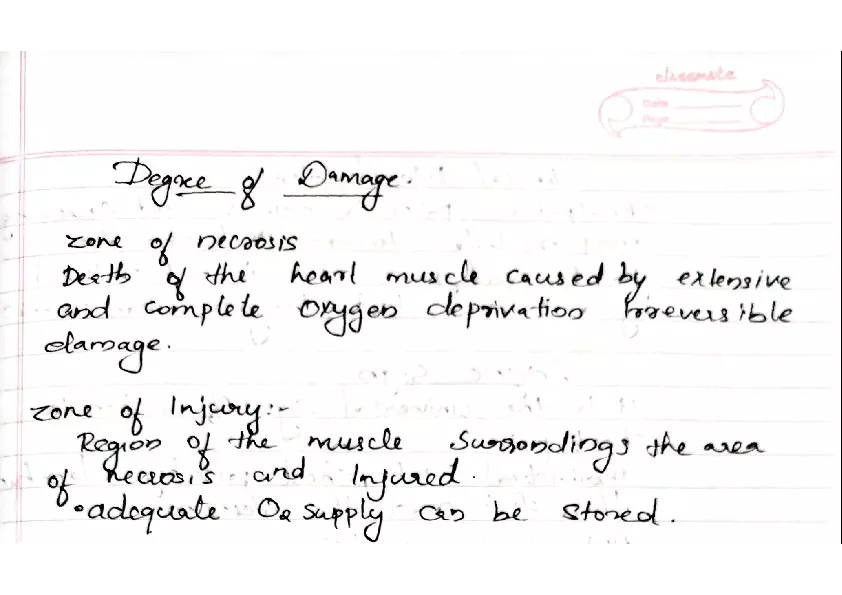 classmate
Date
Page
Degree of Damage.
zone of necrosis
Death of the heart muscle caused by extensive
and complete oxygen deprivation Irreversible
damage.
zone of Injury:-
Region of the muscle Surrondings the area
of necrosis and Injured.
• adequate O2 supply can be stored.